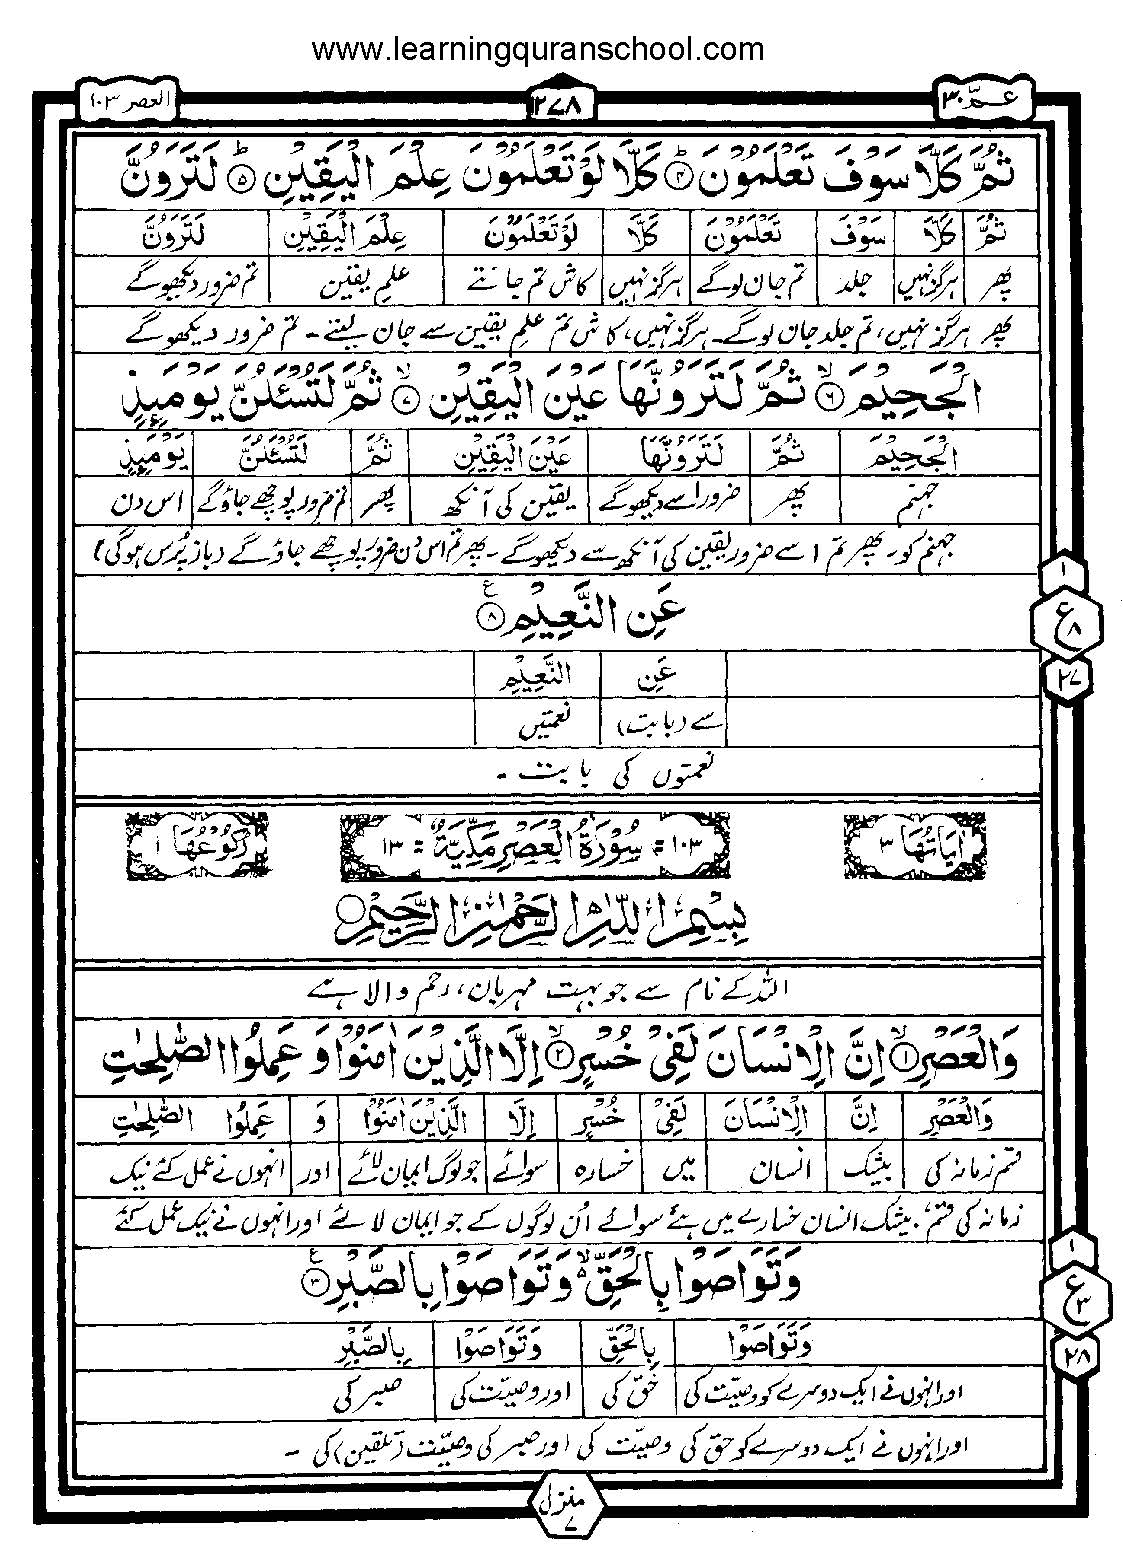 www.learningquranschool.com
عـمّ ۳۰
۱۲۷۸
العصر ۱۰۳
ثُمَّ كَلَّا سَوْفَ تَعْلَمُوْنَ ؕ۴ كَلَّا لَوْ تَعْلَمُوْنَ عِلْمَ الْيَقِيْنِ ؕ۵ لَتَرَوُنَّ
ثُمَّ كَلَّا سَوْفَ تَعْلَمُوْنَ كَلَّا لَوْ تَعْلَمُوْنَ عِلْمَ الْيَقِيْنِ لَتَرَوُنَّ
پھر ہرگز نہیں جلد تم جان لوگے ہرگز نہیں کاش تم جانتے علمِ یقین تم ضرور دیکھوگے
پھر ہرگز نہیں، تم جلد جان لوگے۔ ہرگز نہیں، کاش تم علمِ یقین سے جان لیتے۔ تم ضرور دیکھوگے
الْجَحِيْمَ ۙ۶ ثُمَّ لَتَرَوُنَّهَا عَيْنَ الْيَقِيْنِ ۙ۷ ثُمَّ لَتُسْـَٔلُنَّ يَوْمَئِذٍ
الْجَحِيْمَ ثُمَّ لَتَرَوُنَّهَا عَيْنَ الْيَقِيْنِ ثُمَّ لَتُسْـَٔلُنَّ يَوْمَئِذٍ
جہنم پھر ضرور اسے دیکھوگے یقین کی آنکھ پھر تم ضرور پوچھے جاؤگے اس دن
جہنم کو۔ پھر تم اسے ضرور یقین کی آنکھ سے دیکھوگے۔ پھر تم اس دن ضرور پوچھے جاؤگے (باز پُرس ہوگی)
۱
عَنِ النَّعِيْمِ ۸ ع
ع ۸
عَنِ النَّعِيْمِ
۲۷
سے (بابت) نعمتیں
نعمتوں کی بابت۔
اٰيَاتُهَا ۳
۱۰۳ = سُوْرَةُ الْعَصْرِ مَكِّيَّةٌ = ۱۳
رُكُوْعُهَا ۱
بِسْمِ اللّٰهِ الرَّحْمٰنِ الرَّحِيْمِ
اللہ کے نام سے جو بہت مہربان، رحم والا ہے
وَالْعَصْرِ ۙ۱ اِنَّ الْاِنْسَانَ لَفِيْ خُسْرٍ ۙ۲ اِلَّا الَّذِيْنَ اٰمَنُوْا وَ عَمِلُوا الصّٰلِحٰتِ
وَالْعَصْرِ اِنَّ الْاِنْسَانَ لَفِيْ خُسْرٍ اِلَّا الَّذِيْنَ اٰمَنُوْا وَ عَمِلُوا الصّٰلِحٰتِ
قسم زمانہ کی بیشک انسان میں خسارہ سوائے جو لوگ ایمان لائے اور انہوں نے عمل کئے نیک
زمانہ کی قسم، بیشک انسان خسارے میں ہے سوائے اُن لوگوں کے جو ایمان لائے اور انہوں نے نیک عمل کئے
۱
وَتَوَاصَوْا بِالْحَقِّ ۙ۬ وَتَوَاصَوْا بِالصَّبْرِ ۳ ع
ع ۳
وَتَوَاصَوْا بِالْحَقِّ وَتَوَاصَوْا بِالصَّبْرِ
۲۸
اور انہوں نے ایک دوسرے کو وصیّت کی حق کی اور وصیّت کی صبر کی
اور انہوں نے ایک دوسرے کو حق کی وصیّت کی اور صبر کی وصیّت (تلقین) کی۔
منزل ۷